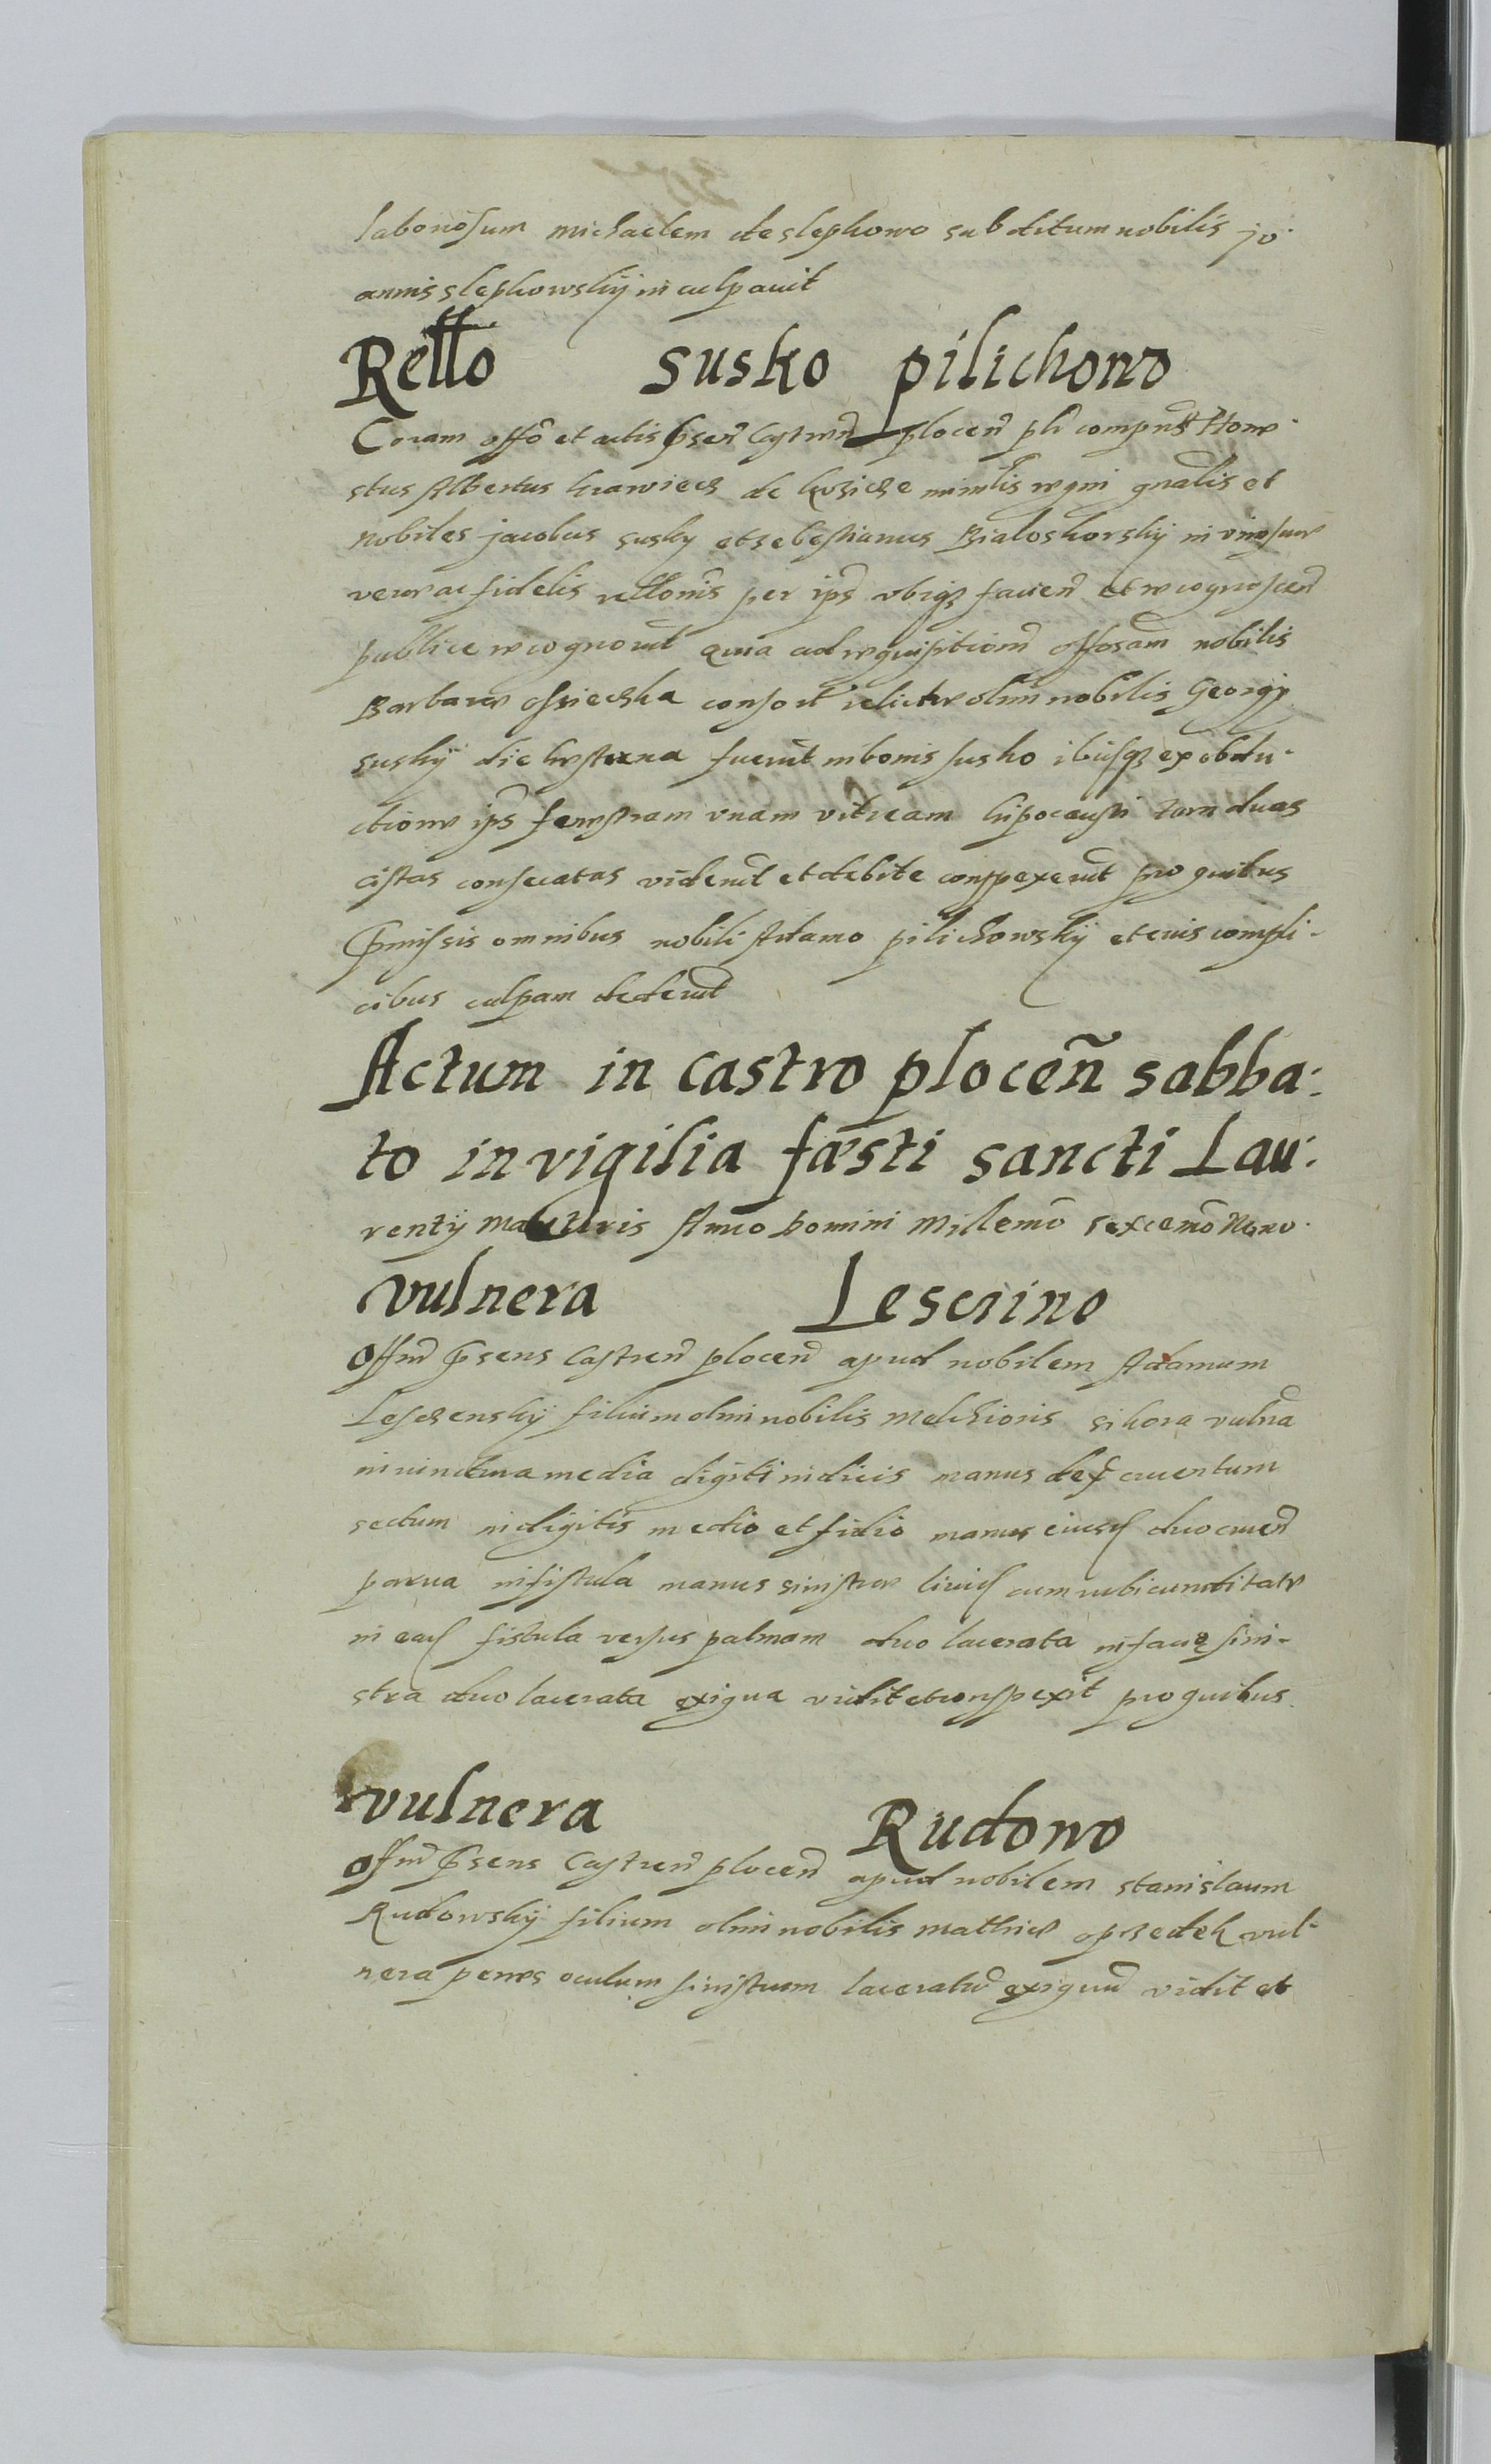 laboriosum Michaelem de slepkowo subditum nobilis Jo-
annis slepkowskÿ inculpauit
Rello susko pilichowo
Coram offo et actis pñsen Castren plocen pñ compñs Hone-
stus Albertus krawiecz de kozicze minlis regni gnalis et
Nobiles jacobus susky et sebestianus Bialoskorskÿ in vim suae
verae ac fidelis rellonis per ips vbiqz facien et recognoscen
publice recognouit quia ad requisitiom offosam nobilis
Barbarae ossieczka consort relictae olim nobilis Georgÿ
suskÿ die hesterna fuerut in bonis susko ibusqz ex obdu-
ctione ips fenestram vnam vitream hipocausti tam duas
cistas consecatas viderut et debite conspexerut pro quibus
pmissis omnibus nobili Adamo pilichowskÿ et euis compli-
cibus culpam dederut
Actum in Castro plocen̄ sabba:
to in vigilia fæsti sancti Lau:
rentÿ Martiris Anno Domini Millemo sexcemo Nono
vulnera Lescrino
Offm pñsens Castren plocen apud nobilem Adamum
Lesczenskÿ filium olim nobilis Melchioris sikora vulna
in iunctura media digiti indicis manus dex cruentum
sectum in digitis medio et fidio manus eiusd duo cruen
parua in fistula manus sinistrae liuid cum rubicunditate
in ead fistula versus palmam duo lacerata in facie sini-
stra duo lacerata exigua vidit et conspexit pro quibus
vulnera Rudowo
Offm pñsens Castren plocen apud nobilem stanislaum
Rudowskÿ filium olim nobilis Mathiae opzedek vul-
nera penes oculum sinistrum laceratu exiguu vidit et